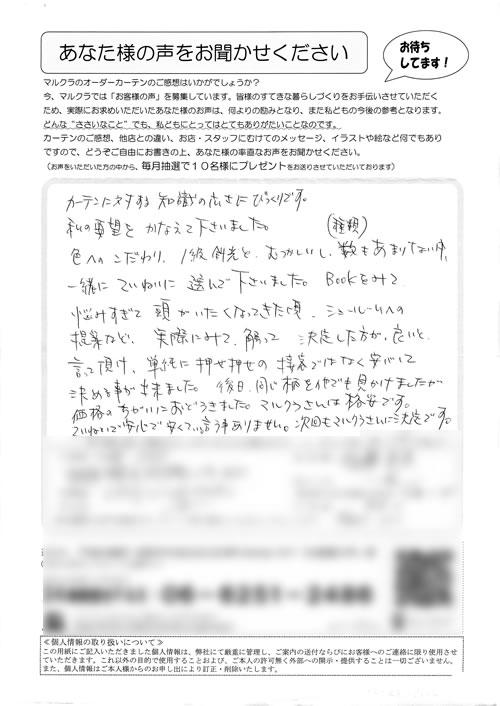 あなた様の声をお聞かせください
お待ち
してます!
マルクラのオーダーカーテンのご感想はいかがでしょうか?
今、マルクラでは「お客様の声」を募集しています。皆様のすてきな暮らしづくりをお手伝いさせていただく
ため、実際にお求めいただいたあなた様のお声は、何よりの励みとなり、また私どもの今後の参考となります。
どんな“ささいなこと”でも、私どもにとってはとてもありがたいことなのです。
カーテンのご感想、他店との違い、お店・スタッフにむけてのメッセージ、イラストや絵など何でもあり
ですので、どうぞご自由にお書きの上、あなた様の率直なお声をお聞かせください。
(お声をいただいた方の中から、毎月抽選で10名様にプレゼントをお送りさせていただいております)
カーテンに対する 知識の広さにびっくりです。
私の要望を かなえて下さいました。
(種類)
色へのこだわり、1級斜光と、むつかしいし、数もあまりない中、
一緒に ていねいに 選んで下さいました。 Bookをみて
悩みすぎて 頭がいたくなってきた頃、ショールームへの
提案など、 実際にみて、触って 決定した方が、良いと
言って頂け、単純に押せ押せの 接客ではなく安心して
決める事が出来ました。 後日、同じ柄を他でも見かけましたが
価格のちがいにおどろきました。マルクラさんは格安です。
ていねいで安心で安くて言う事ありません。次回もマルクラさんに決定です。
06-6251-2486
≪個人情報の取り扱いについて≫
この用紙にご記入いただきました個人情報は、弊社にて厳重に管理し、ご案内の送付ならびにお客様へのご連絡に限り使用させ
ていただきます。これ以外の目的で使用することおよび、ご本人の許可無く外部への開示・提供することは一切ございません。
また、個人情報はご本人様からのお申し出により訂正・削除いたします。